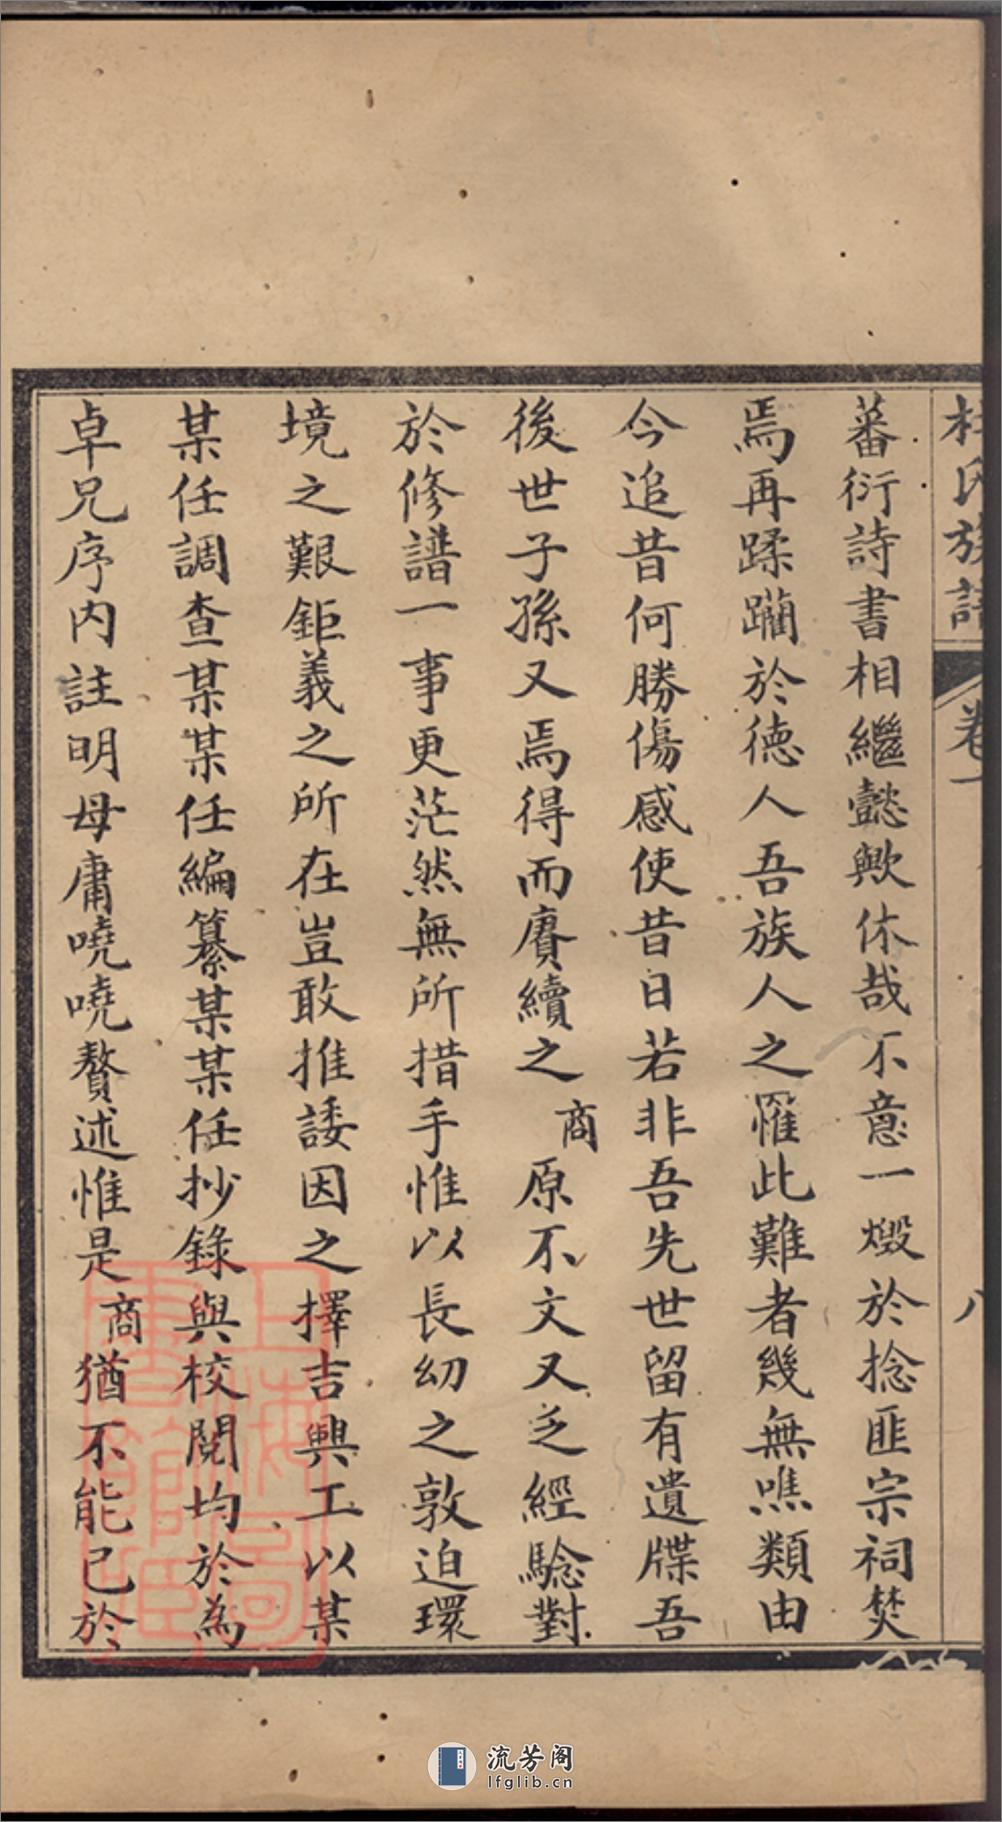 杜氏族譜 卷一 八
蕃衍詩書相繼懿歟休哉不意一燬於捻匪宗祠焚
焉再蹂躪於德人吾族人之罹此難者幾無噍類由
今追昔何勝傷感使昔日若非吾先世留有遺牒吾
後世子孫又焉得而賡續之商原不文又乏經驗對
於修譜一事更茫然無所措手惟以長幼之敦迫環
境之艱鉅義之所在豈敢推諉因之擇吉興工以某
某任調查某某任編纂某某任抄錄與校閱均於為
卓兄序內註明毋庸嘵嘵贅述惟是商猶不能已於
上海圖書館藏
流芳阁
lfglib.cn